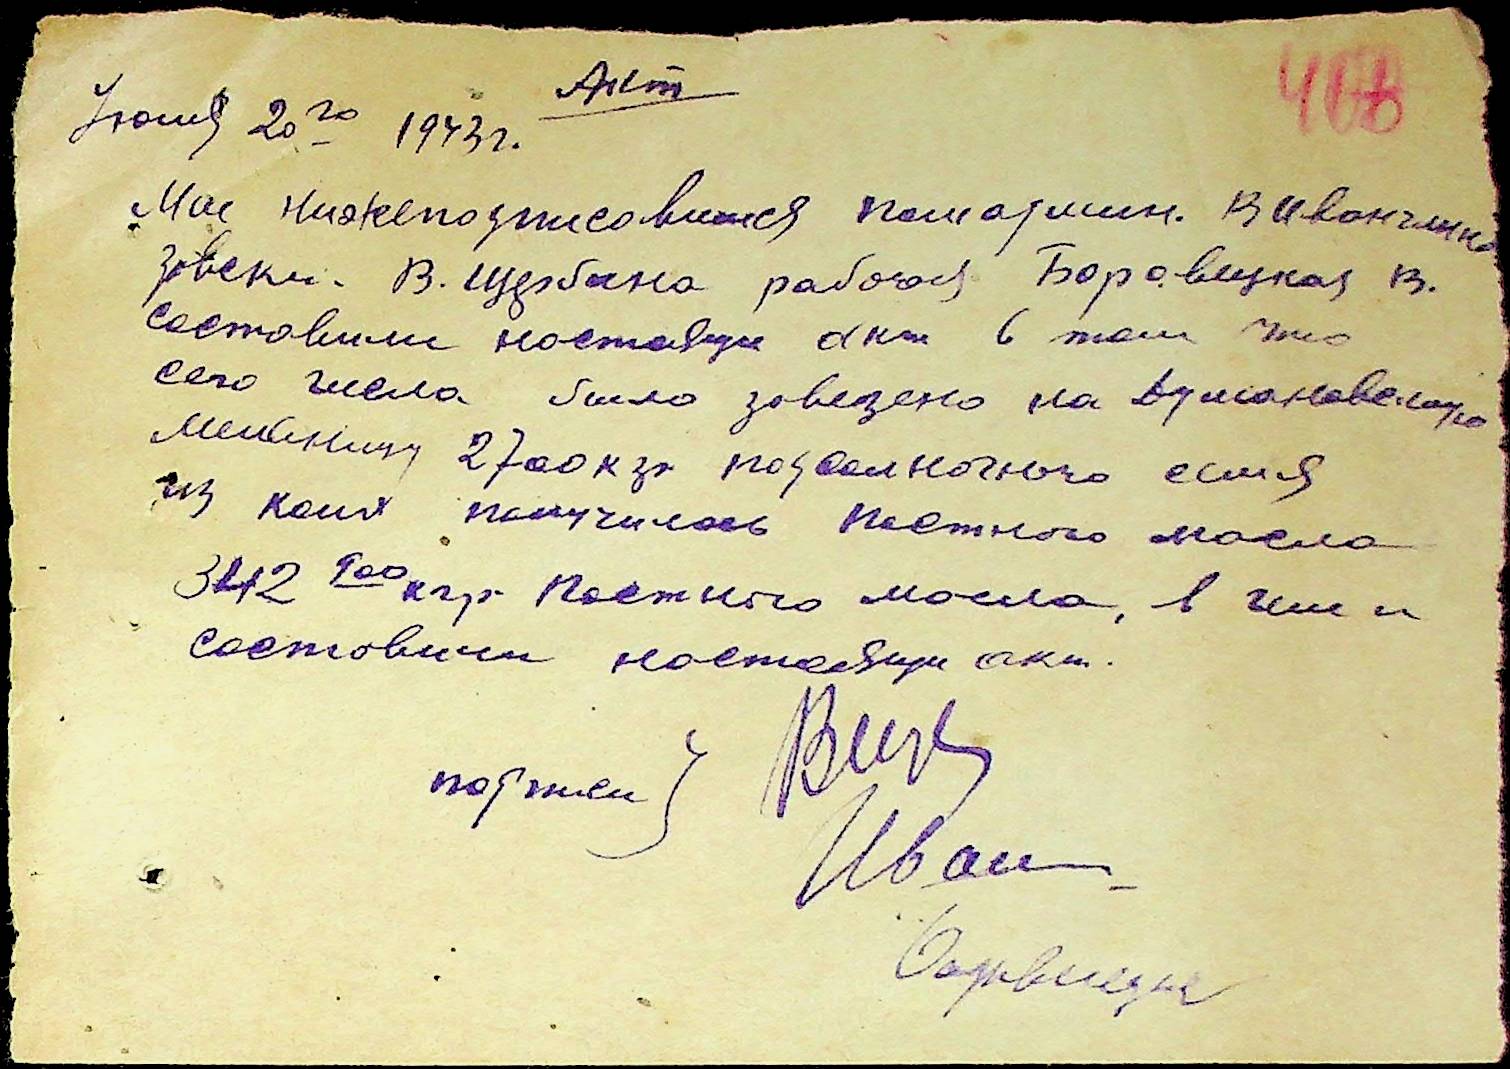 Акт
Июня 20го 1943г.
Мы нижеподписавшися В Иванчина
завскл. В. Щербана рабочая Боровицкая В.
состовили настоящи акт в том что
сего числа было завезено на Думановскую
мельницу 2700 кгр подсолночного симя
из коих получилось постного масла
342 900 кгр постного масла, в чем и
состовили настоящи акт.
подписи
Иван
Боровицка